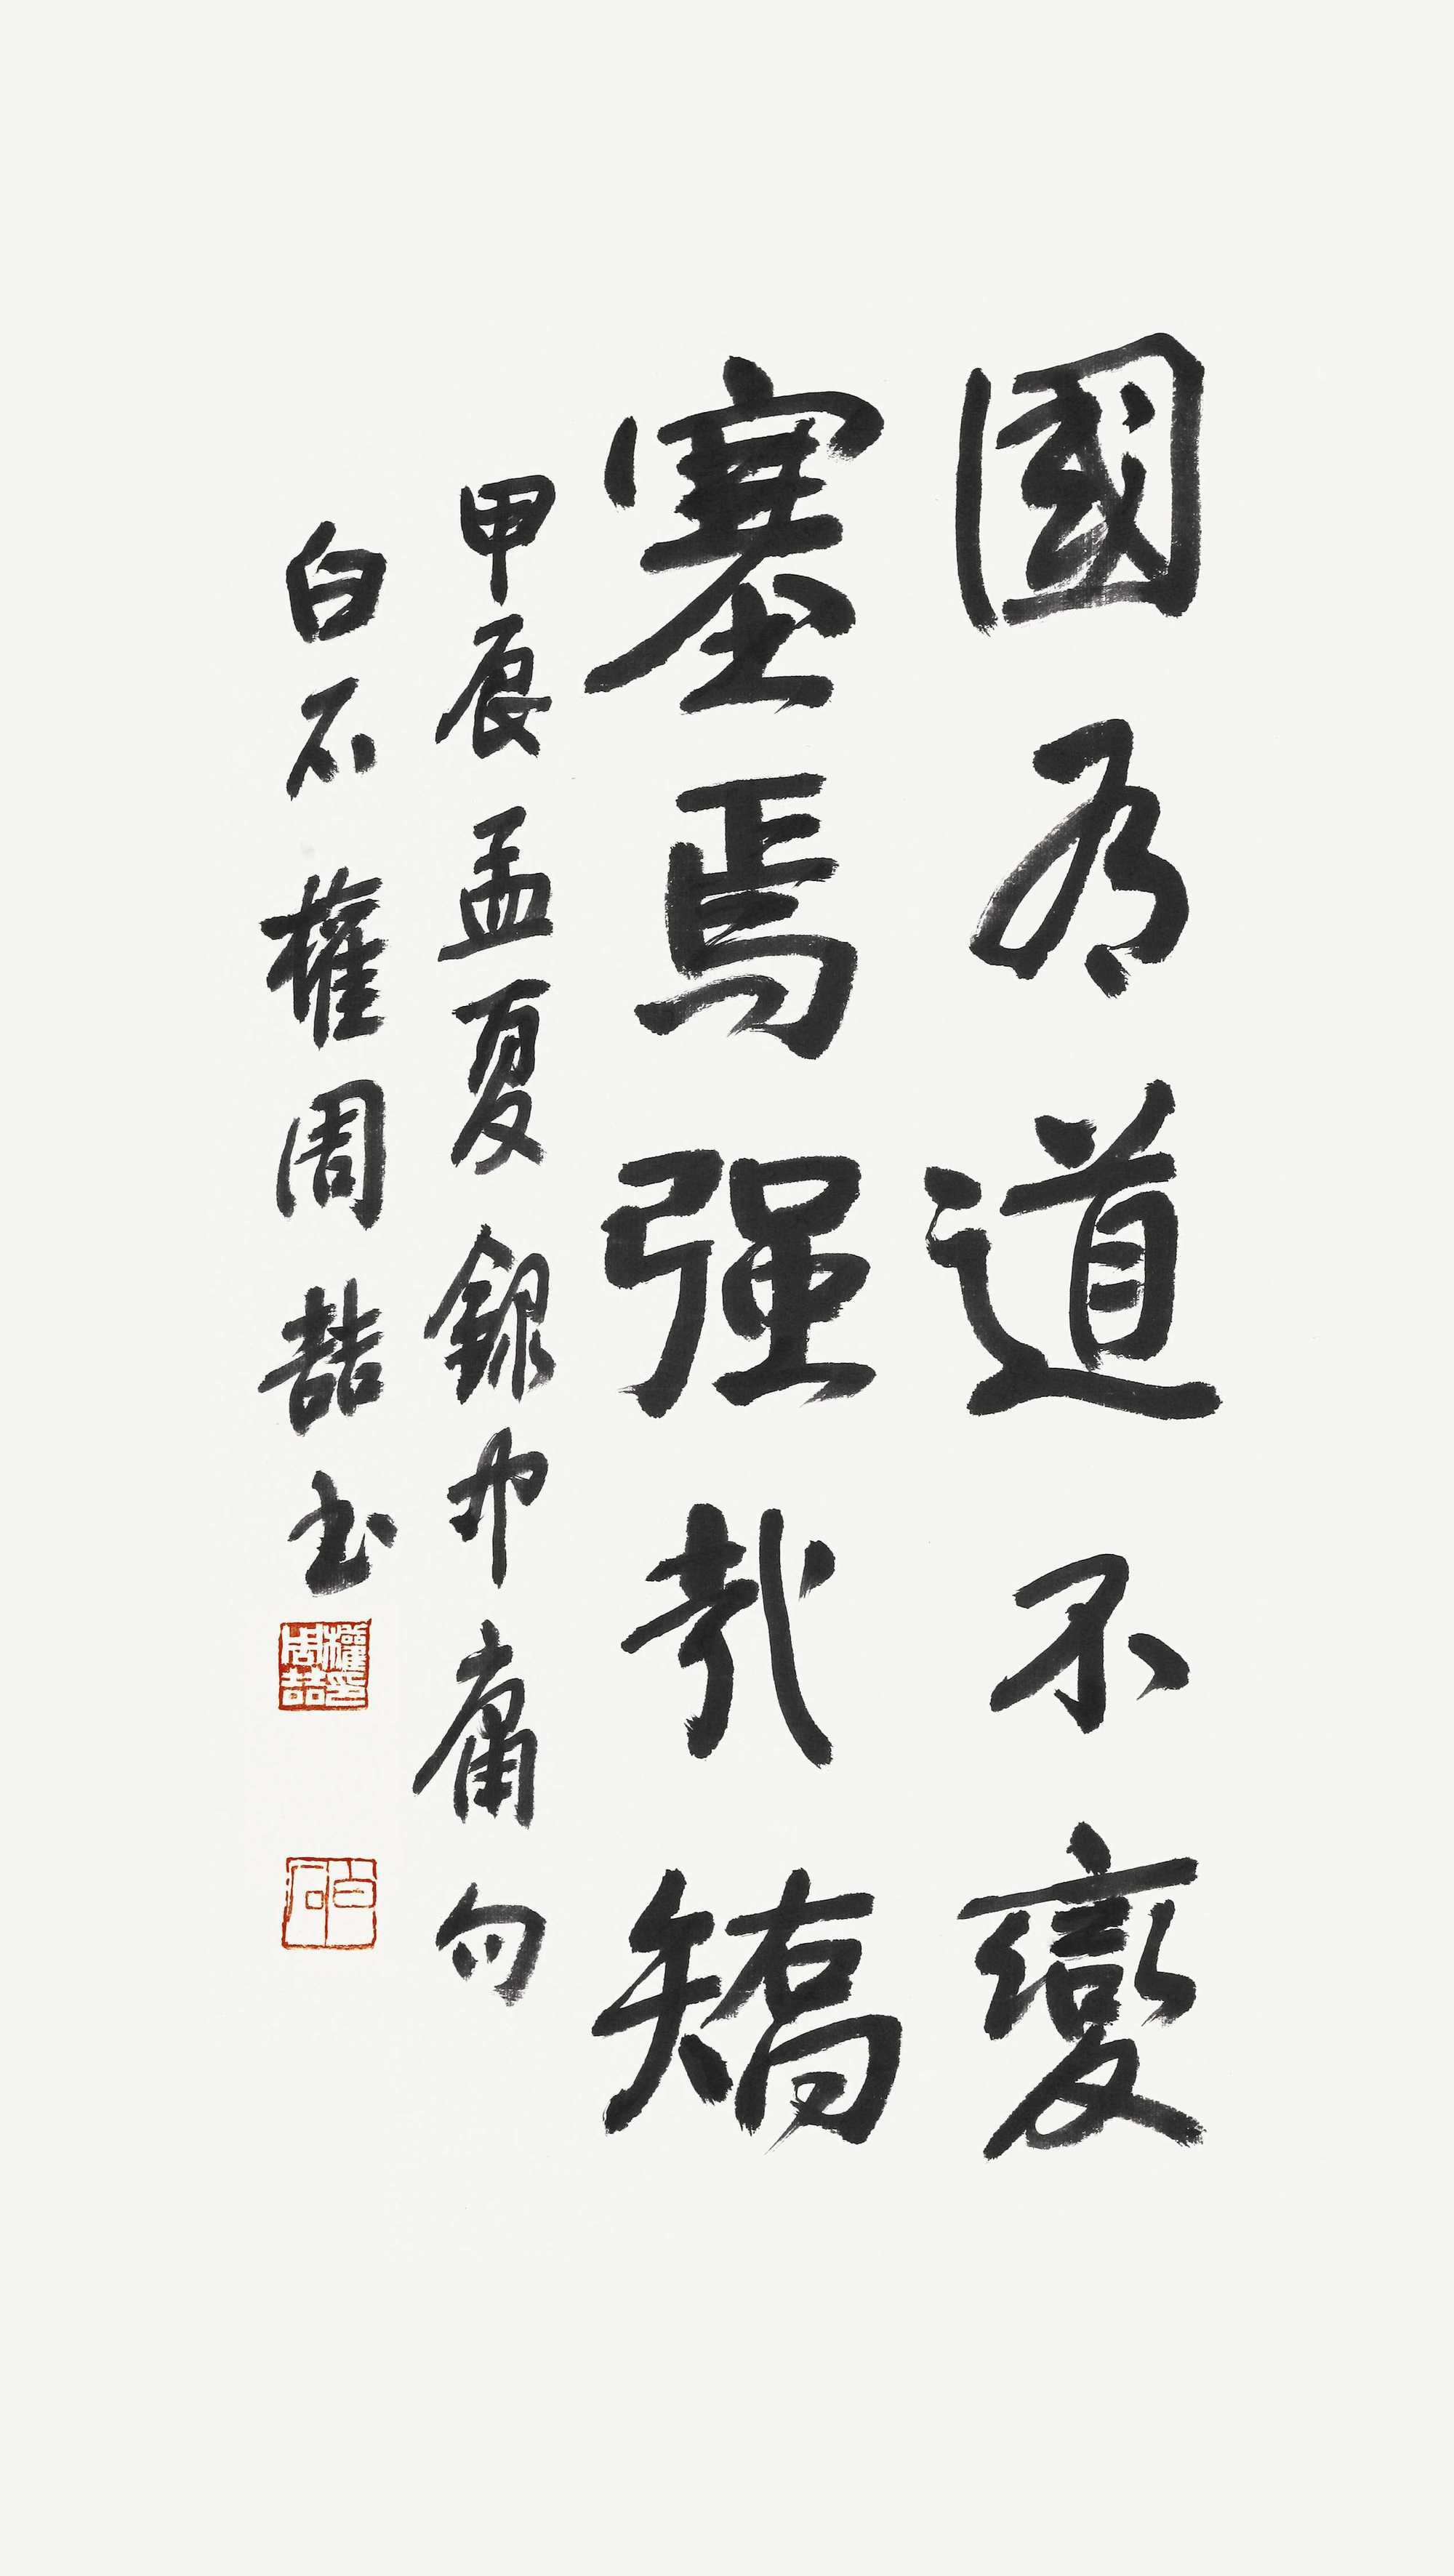 國有道不變
塞焉强哉矯
甲辰孟夏録中庸句
白石權周喆書
權周喆印
白石